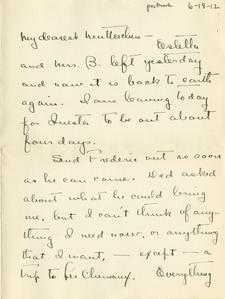 postmark 6-18-12
My dearest Mutterchen — Estella
and Mrs. B. left yesterday
and now it is back to earth
again. I am leaving today
for Questa to be out about
four days.
Send Frederic out so soon
as he can come. Dad asked
about what he could bring
me, but I can't think of any-
thing I need now, or anything
that I want, — except — a
trip to Les Cheneaux. Everything